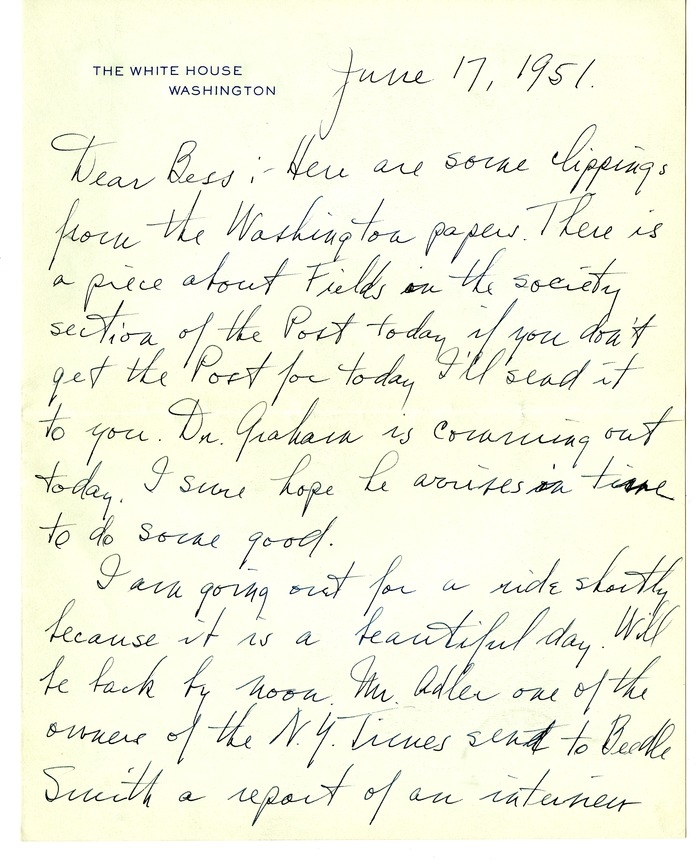 THE WHITE HOUSE
WASHINGTON
June 17, 1951.
Dear Bess :- Here are some clippings
from the Washington papers. There is
a piece about Fields in the society
section of the Post today if you don't
get the Post for today I'll send it
to you. Dr. Graham is comming out
today. I sure hope he arrives in time
to do some good.
I am going out for a ride shortly
because it is a beautiful day. Will
be back by noon. Mr. Adler one of the
owners of the N.Y. Times sent to Beedle
Smith a report of an interview